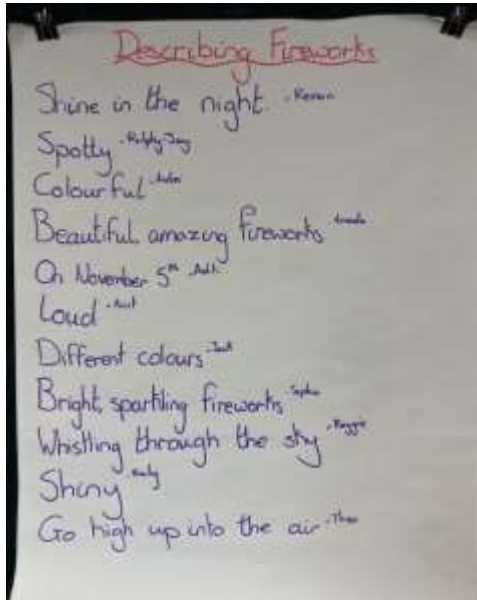 Describing Fireworks
Shine in the night.
Spotty
Colourful
Beautiful, amazing fireworks
On November 5th
Loud
Different colours
Bright, sparkling fireworks
Whistling through the sky
Shiny
Go high up into the air - Theo